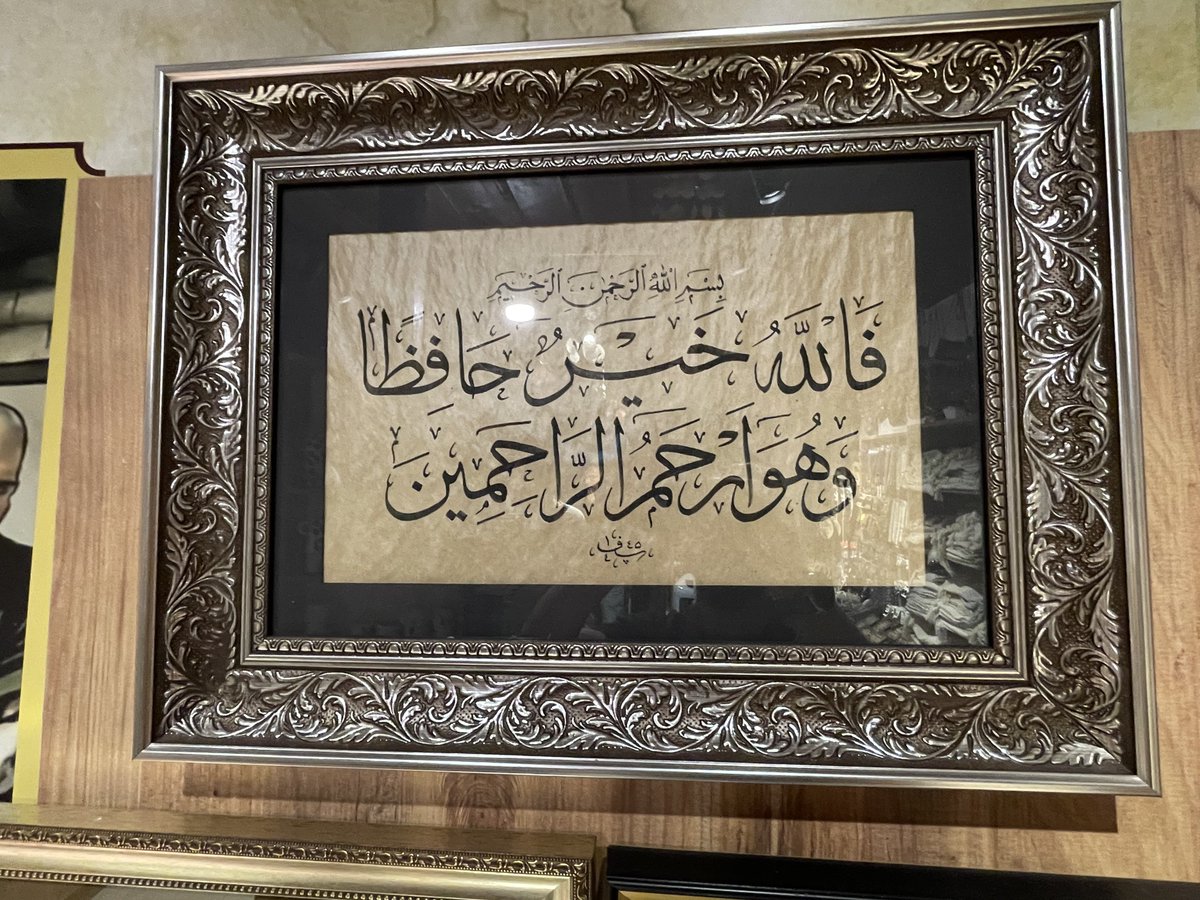 بِسْمِ اللهِ الرَّحْمٰنِ الرَّحِيْمِ
فَاللَّهُ خَيْرٌ حَافِظًا
وَهُوَ أَرْحَمُ الرَّاحِمِينَ